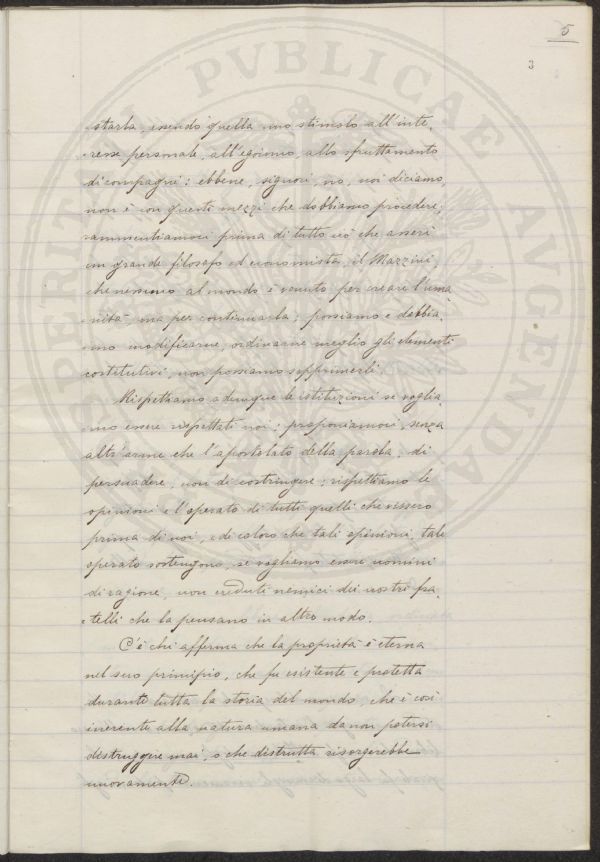 5
3
-starla, essendo quella uno stimolo all'inte,
-resse personale, all'egoismo, allo sfruttamento
di compagni: ebbene, signori, no, noi diciamo,
non è con questi mezzi che dobbiamo procedere;
rammentiamoci prima di tutto ciò che asserì
un grande filosofo ed economista, il Mazzini,
che nessuno al mondo è venuto per creare l'uma
-nità, ma per continuarla; possiamo e dobbia
-mo modificarne, ordinarne meglio gli elementi
costitutivi, non possiamo sopprimerli.
Rispettiamo adunque le istituzioni se voglia
-mo essere rispettati noi; proponiamoci, senza
altr'arme che l'apostolato della parola, di
persuadere, non di costringere; rispettiamo le
opinioni e l'operato di tutti quelli che vissero
prima di noi, e di coloro che tali opinioni, tale
operato sostengono, se vogliamo essere uomini
di ragione, non creduti nemici dei nostri fra
-telli che la pensano in altro modo.
C'è chi afferma che la proprietà è eterna
nel suo principio, che fu esistente e protetta
durante tutta la storia del mondo, che è così
inerente alla natura umana da non potersi
distruggere mai, o che distrutta risorgerebbe
nuovamente.
PROSPERITATI PVBLICAE AVGENDAE